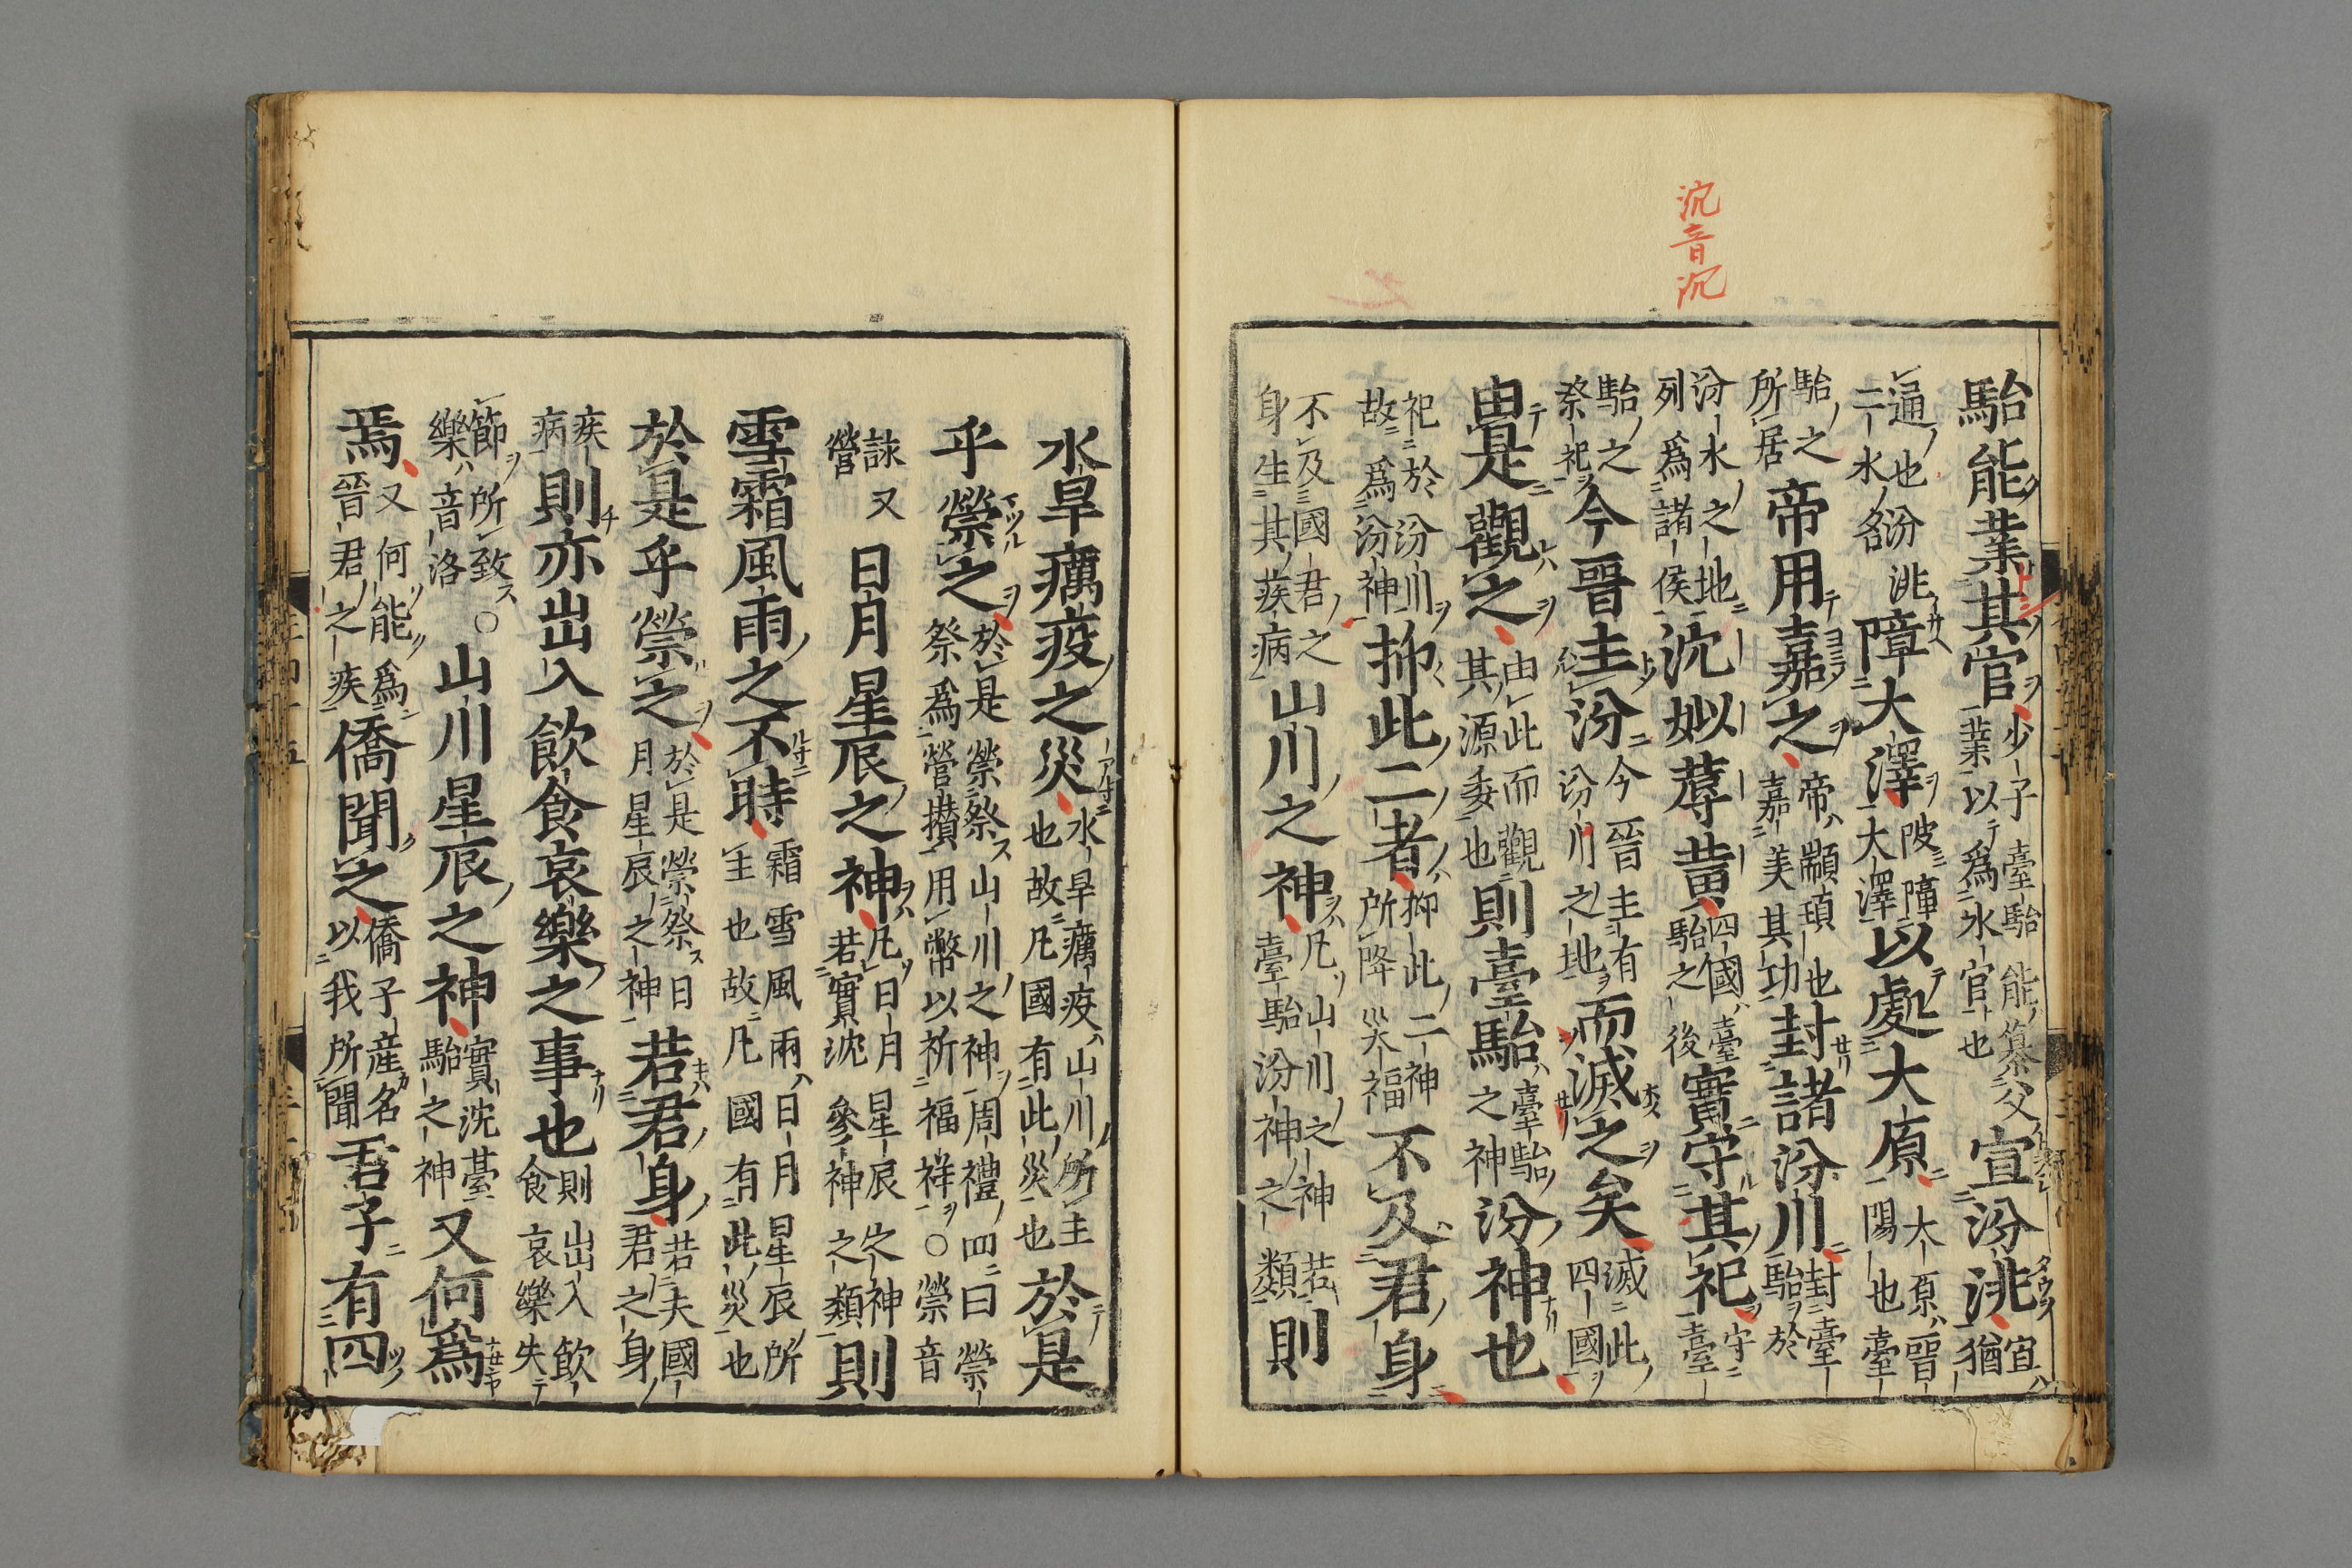 沉音沉
駘能業其官少子臺駘能纂父業以爲水官也宣汾洮宣猶
通也汾洮二水名障大澤陂障大澤以處大原大原晉陽也臺
駘之所居帝用嘉之帝顓頊也嘉美其功封諸汾川封臺駘於
汾水之地列爲諸侯沈姒蓐黃四國臺駘之後實守其祀守臺
駘之祭祀今晉主汾今晉主有汾川之地而滅之矣滅此四國
由是觀之由此而觀其源委也則臺駘臺駘之神汾神也
祀於汾川故爲汾神抑此二者抑此二神所降災福不及君身
不及國君之身生其疾病山川之神凡山川之神若臺駘汾神之類則
水旱癘疫之災水旱癘疫山川所主也故凡國有此災也於是
乎禜之於是禜祭山川之神周禮四曰禜祭爲營攅用幣以祈福祥○禜音
詠又營日月星辰之神凡日月星辰之神若實沈參神之類則
雪霜風雨之不時霜雪風雨日月星辰所主也故凡國有此災也
於是乎禜之於是禜祭日月星辰之神若君身若夫國君之身
疾病則亦出入飲食哀樂之事也則出入飲食哀樂失
節所致樂音洛○山川星辰之神實沈臺駘之神又何爲
焉又何能爲晉君之疾僑聞之僑子産名以我所聞君子有四